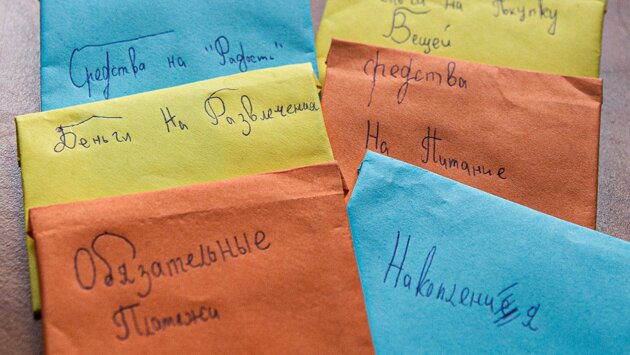 Средства на "Радость"
Деньги На Развлечения
Обязательные
Платежи
На Покупку
Вещей
средства
На Питание
Накопления